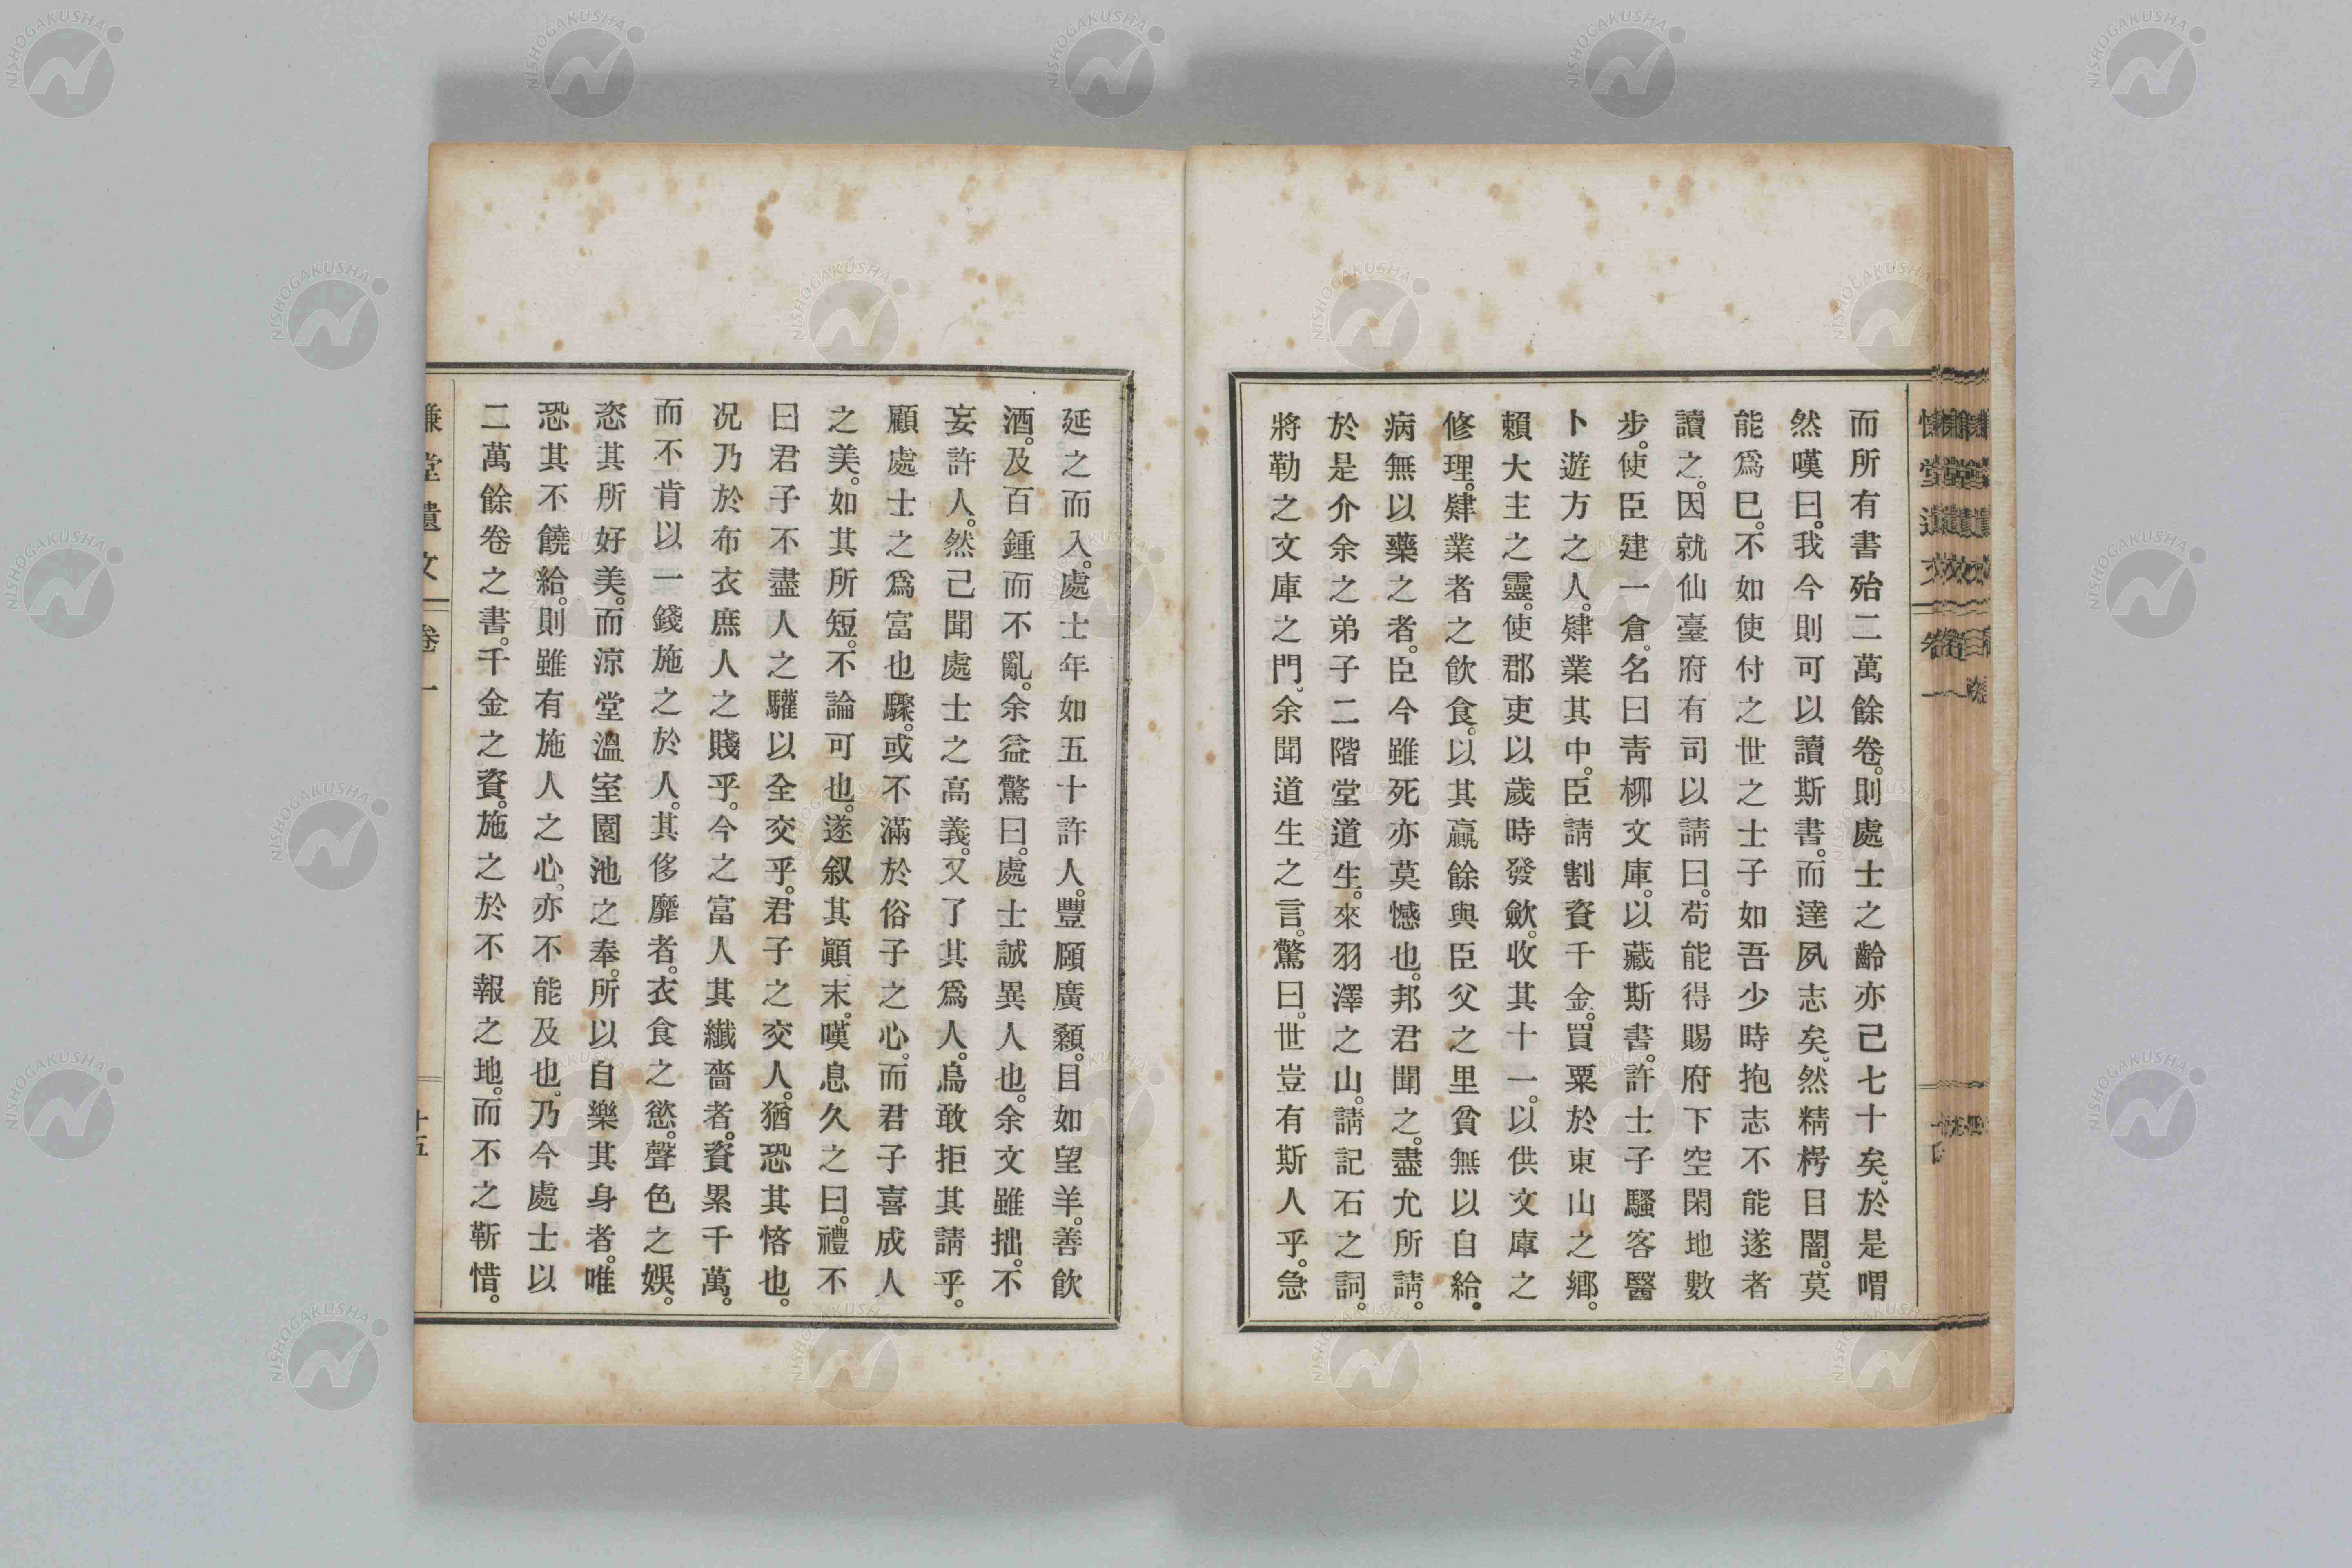 而所有書殆二萬餘卷。則處士之齡亦已七十矣。於是喟
然嘆曰。我今則可以讀斯書。而達夙志矣。然精楞目闇。莫
能爲已。不如使付之世之士子如吾少時抱志不能遂者
讀之。因就仙臺府有司以請曰。苟能得賜府下空閑地數
步。使臣建一倉。名曰靑柳文庫。以藏斯書。許士子騷客醫
卜遊方之人。肄業其中。臣請割資千金。買粟於東山之鄕。
賴大主之靈。使郡吏以歲時發斂。收其十一。以供文庫之
修理。肄業者之飮食。以其贏餘與臣父之里貧無以自給。
病無以藥之者。臣今雖死亦莫憾也。邦君聞之。盡允所請。
於是介余之弟子二階堂道生。來羽澤之山。請記石之詞。
將勒之文庫之門。余聞道生之言。驚曰。世豈有斯人乎。急
延之而入。處士年如五十許人。豐頤廣顙。目如望羊。善飮
酒。及百鍾而不亂。余益驚曰。處士誠異人也。余文雖拙。不
妄許人。然已聞處士之高義。又了其爲人。烏敢拒其請乎。
顧處士之爲富也驟。或不滿於俗子之心。而君子喜成人
之美。如其所短。不論可也。遂叙其顚末。嘆息久之曰。禮不
曰君子不盡人之驩以全交乎。君子之交人。猶恐其悋也。
況乃於布衣庶人之賤乎。今之富人其纖嗇者。資累千萬。
而不肯以一錢施之於人。其侈靡者。衣食之慾。聲色之娛。
恣其所好美。而涼堂溫室園池之奉。所以自樂其身者。唯
恐其不饒給。則雖有施人之心。亦不能及也。乃今處士以
二萬餘卷之書。千金之資。施之於不報之地。而不之靳惜。
慊堂遺文 卷一
十五
NISHOGAKUSHA